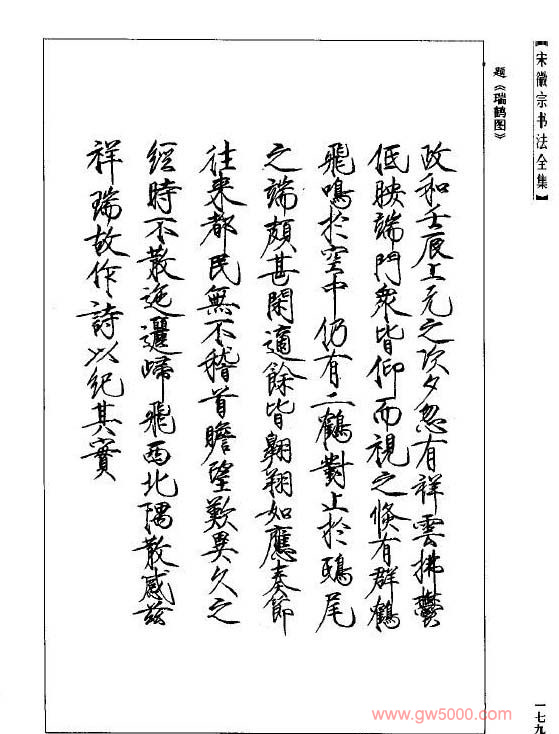 【宋徽宗书法全集】
题《瑞鹤图》
政和壬辰上元之次夕忽有祥雲拂鬱
低映端門衆皆仰而視之倏有群鶴
飛鳴於空中仍有二鶴對止於鴟尾
之端頗甚閑適餘皆翱翔如應奏節
往来都民無不稽首瞻望歎異久之
經時不散迤邐歸飛西北隅散感兹
祥瑞故作詩以紀其實
一七九
www.gw5000.com